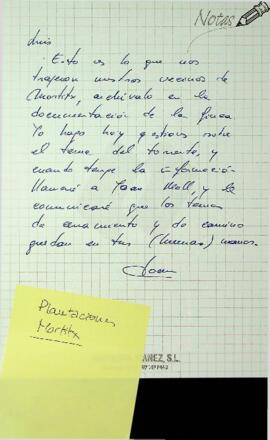 Notas
Luis
Esto es lo que nos
trajeron nuestros vecinos de
Mortitx, archivalo en la
documentación de la finca
Yo hago hoy gestiones sobre
el tema del torrente, y
cuando tenga la información
llamaré a Joan Moll, y le
comunicaré que los temas
de and camino
quedan en tus (buenas) manos.
Joan
Plantaciones
Mortitx
ÑEZ, S.L.